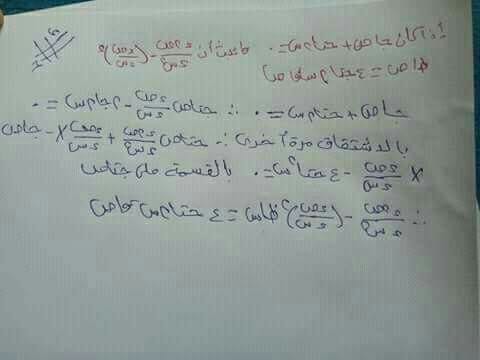 إذا كان جا ص + جتا ٢س = ٠ فاثبت أن د٢ص/دس٢ - (دص/دس)٢
ظا ص = ٤ جتا ٢س قا ص
جا ص + جتا ٢س = ٠ ∴ جتا ص دص/دس - ٢ جا ٢س = ٠
بالاشتقاق مرة أخرى ∴ جتا ص د٢ص/دس٢ + دص/دس × - جا ص
× دص/دس - ٤ جتا ٢س = ٠ بالقسمة على جتا ص
∴ د٢ص/دس٢ - (دص/دس)٢ ظا س = ٤ جتا ٢س قا ص